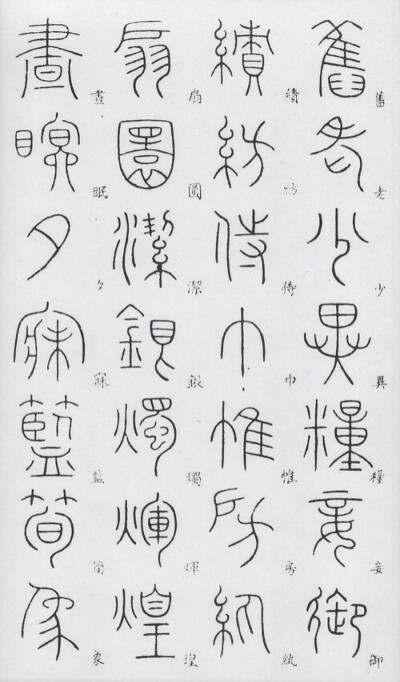 舊老少異糧妾御
績紡侍巾帷房紈
扇圓潔銀燭煇煌
晝眠夕寐藍筍象